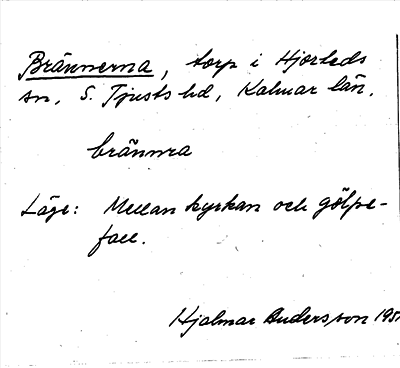 Brännerna, torp i Hjorteds
sn, S. Tjusts hd, Kalmar län.
bränna
Läge: Mellan kyrkan och gölpe-
fall.
Hjalmar Andersson 195